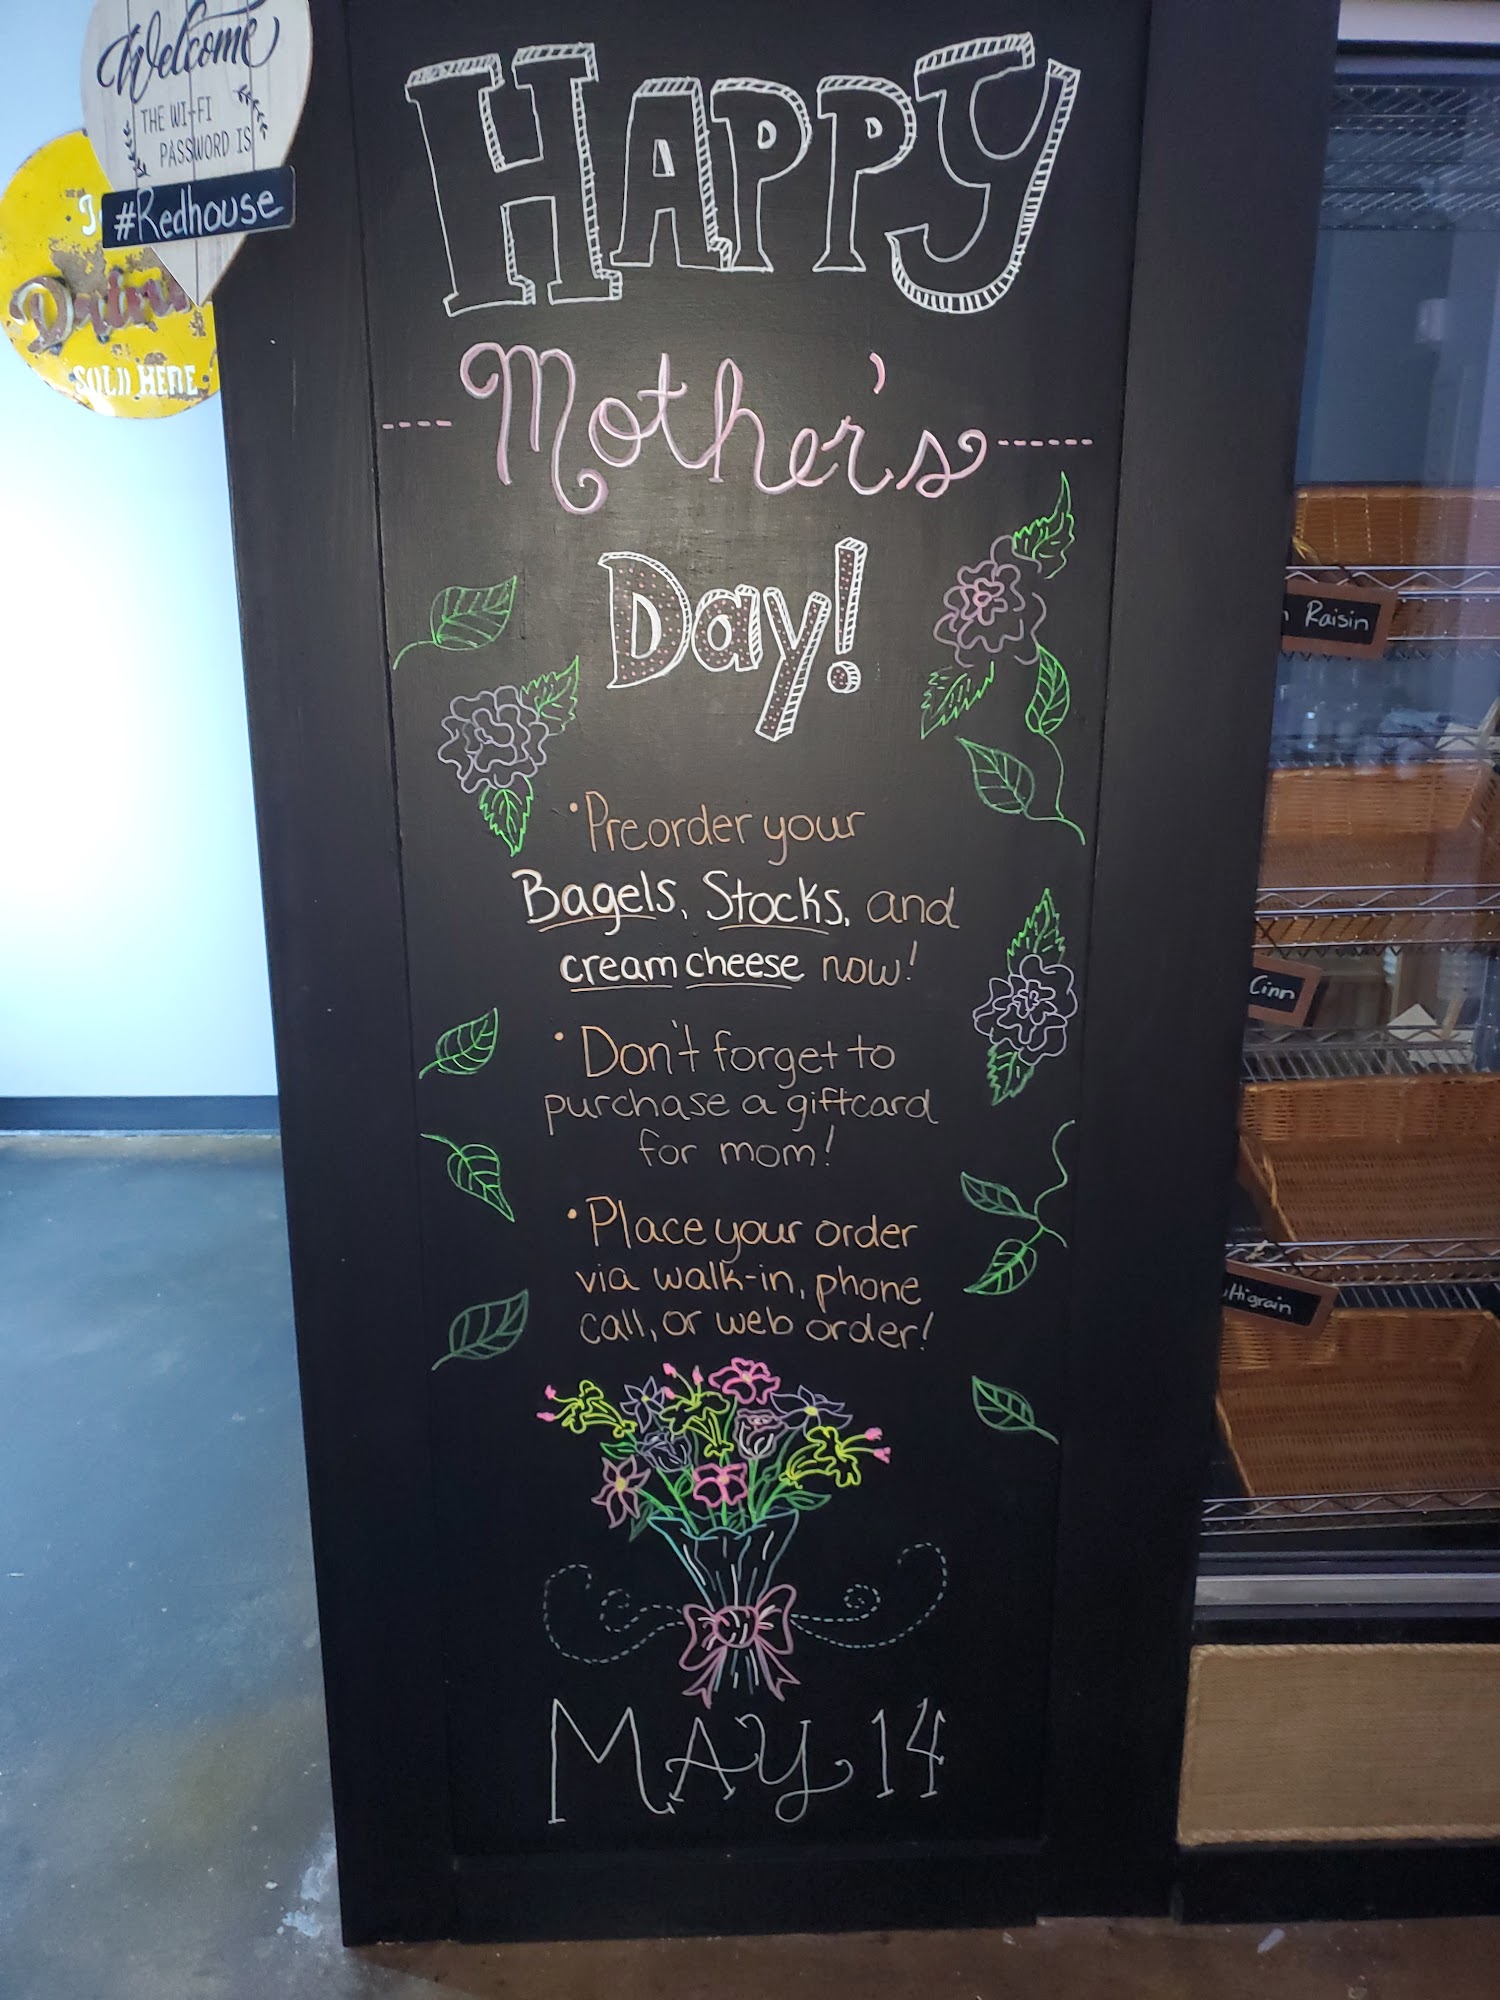 Welcome
THE WI-FI
PASSWORD IS
#Redhouse
SOLD HERE
HAPPY
Mother's
Day!
• Preorder your
Bagels, Stocks, and
cream cheese now!
• Don't forget to
purchase a giftcard
for mom!
• Place your order
via walk-in, phone
call, or web order!
MAY 14
Raisin
Cinn